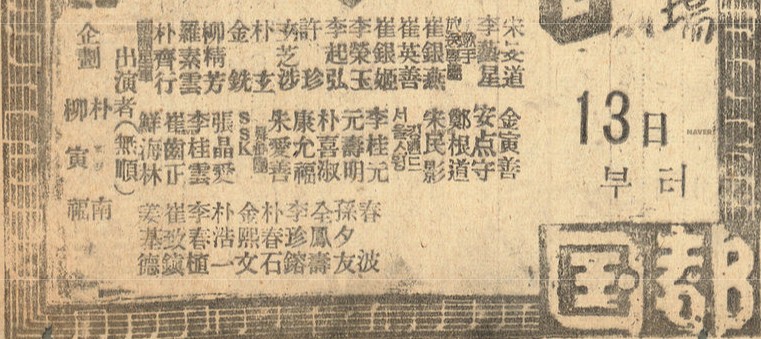 場
13日
부터
国都
NAVER
宋文道
李藝星
歌手
崔銀燕
崔英善
崔銀姬
李榮玉
李起弘
許珍
安芝沙
朴玄
金銑
柳精芳
羅素雲
朴齊行
出演者(無順)
企劃
金寅善
安点守
鄭根道
宋民影
李桂元
元壽明
朴喜淑
康允福
朱愛善
SSK
張晶愛
李桂雲
崔齒正
鮮海林
朴 南
柳寅
春波
孫夕友
全鳳壽
李珍鎔
朴春石
金熙文
朴浩一
李春植
姜基德